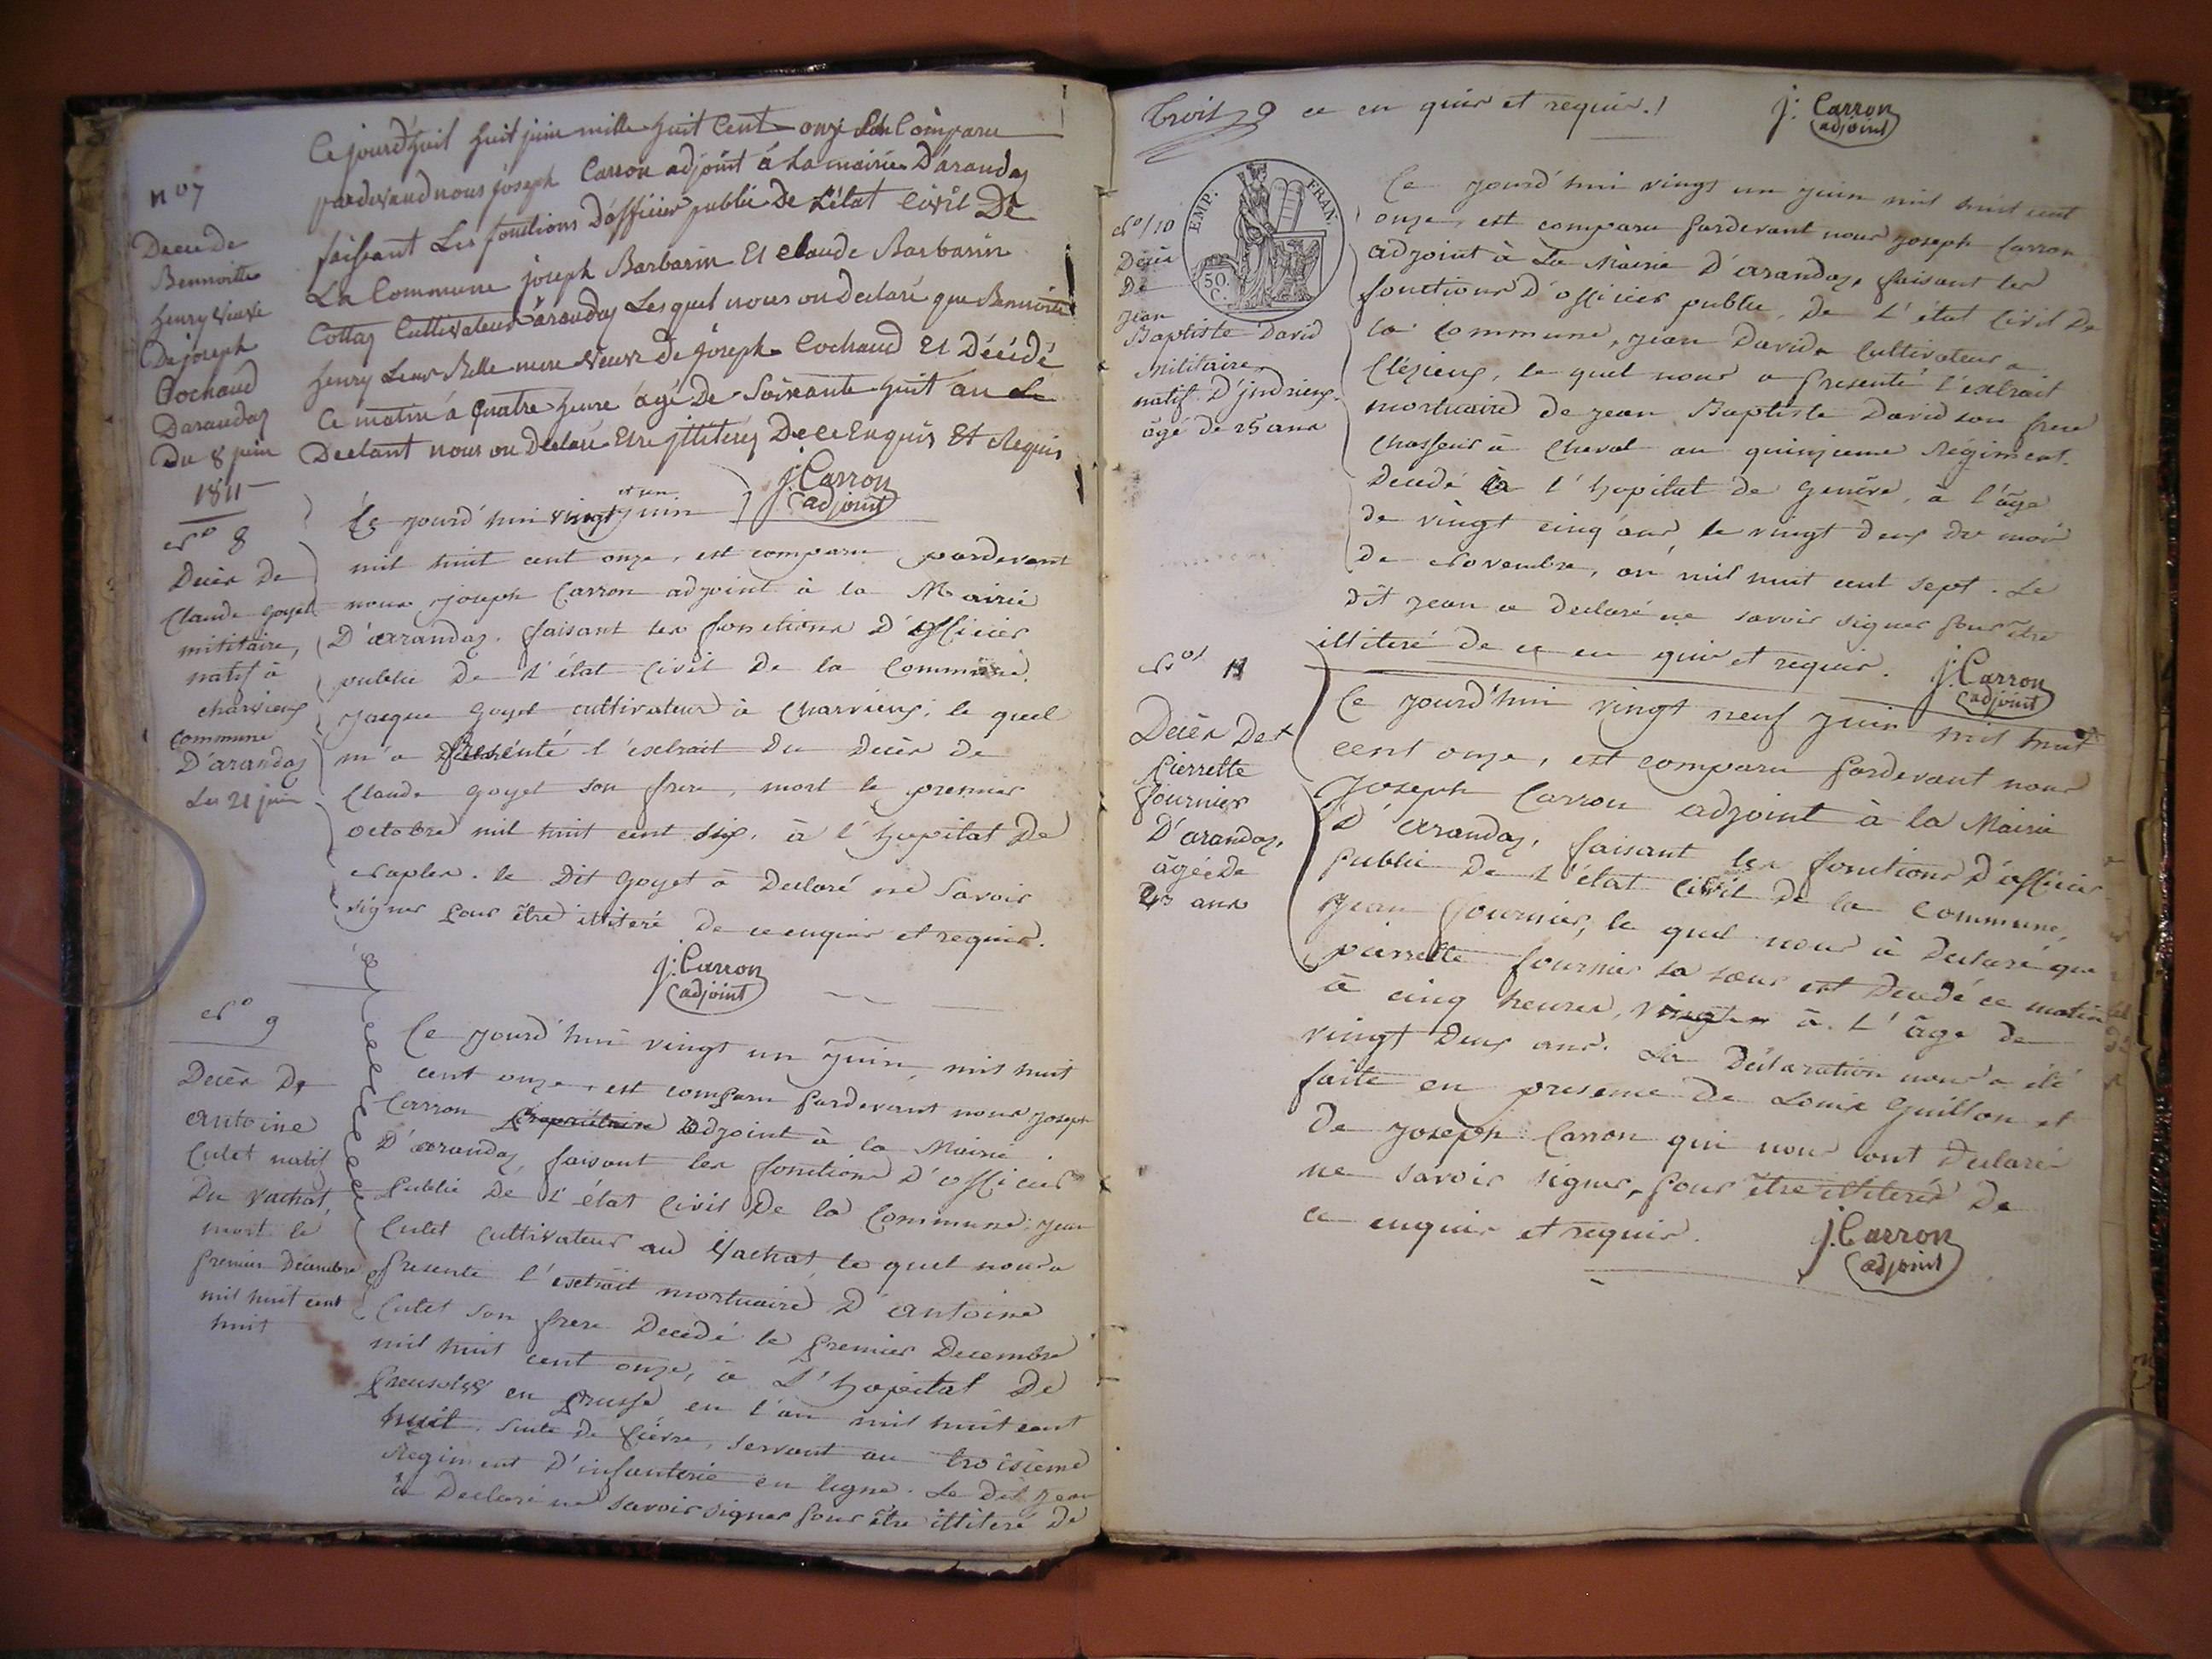 n° 7
Deces de
Bennoitte
henry veuve
De joseph
Cochaud
Darandas
Du 8 juin
1811
Ce jourd'huit huit juin mille huit Cent onze son Comparu
pardevand nous joseph Carron adjoint á la mairie D'arandas
faissant Les fonctions D'officier public De L'état Civil De
La Commune joseph Barbarin Et Claude Barbarin
Cottas Cultivateur á arandas Lesquel nous on declaré que Bennoitte
henry Leur Belle mere veuve De joseph Cochaud Et Décédé
Ce matin á quatre heure ágé De Soixante huit an
Declant nous on Declaré Etre illiterés De ce Enquis Et Requis
J. Carron
adjoint
N° 8
Decès De
Claude goyet
militaire,
natif à
charvieux
commune
D'arandas
Les 21 juin
Ce jourd'hui vingt et un juin
mil huit cent onze, est comparu pardevant
nous joseph Carron adjoint à la Mairie
D'arandas. faisant les fonctions D'officier
public De L'état Civil De la Commune.
Jacque Goyet cultivateur à Charvieux. le quel
m'a présenté l'extrait Du Decès De
Claude goyet son frere, mort le premier
octobre mil huit cent six, à l'hopital De
Naples. le Dit Goyet à Declaré ne Savoir
signer pour être illiteré De ce enquis et requis.
J. Carron
adjoint
N° 9
Decès De
antoine
Culet natif
Du vachat,
mort le
premier Décembre
mil huit cent
huit
Ce jourd'hui vingt un juin, mil huit
cent onze, est comparu pardevant nous joseph
Carron propriétaire adjoint à la Mairie
D'arandas, faisant les fonctions D'officier
Public De L'état Civil De la Commune; jean
Culet cultivateur au vachat, le quel nous a
presenté l'extrait mortuaire D'antoine
Culet son frere Decédé le premier Decembre
mil huit cent onze, à L'hopital De
en prusse en l'an mil huit cent
huit, suite De fièvre, servant au troisième
Regiment D'infanterie en ligne. Le Dit jean
a Declaré ne savoir signer pour être illiteré De
Troit 9 ce en quis et requis.
J. Carron
adjoint
EMP. FRAN.
50.
C.
N° 10
Décès
De
Jean
Baptiste David
militaire,
natif D'indrieux
âgé de 25 ans
Ce jourd'hui vingt un juin mil huit cent
onze, est comparu pardevant nous joseph Carron
adjoint à La Mairie D'arandas, faisant les
fonctions D'officier public, De L'état Civil De
la Commune, jean David, cultivateur a
Clézieux, le quel nous a presenté l'extrait
mortuaire de jean Baptiste David son frere
chasseur à cheval au quinzieme Régiment.
Decedé à l'hopital de Genêve, à l'âge
de vingt cinq ans le vingt Deux du mois
de Novembre, an mil huit cent sept. Le
dit jean a declaré ne savoir signer pour être
illiteré De ce en quis et requis.
J. Carron
adjoint
N° 11
Decès De
Pierrette
fournier
D'arandas,
âgée De
ans
Ce jourd'hui vingt neuf juin mil huit
cent onze, est comparu pardevant nous
Joseph Carron adjoint à la Mairie
D'arandas, faisant les fonctions D'officier
Public De L'état Civil De la Commune,
Jean fournier, le quel nous à Declaré que
pierrette fournier sa sœur est Decedé ce matin
à cinq heures, à L'âge De
vingt Deux ans. La Déclaration nous a été
faite en presence De Louis Guillon et
De Joseph Carron qui nous ont Declaré
ne savoir signer, pour être illiterés De
ce enquis et requis.
J. Carron
adjoint